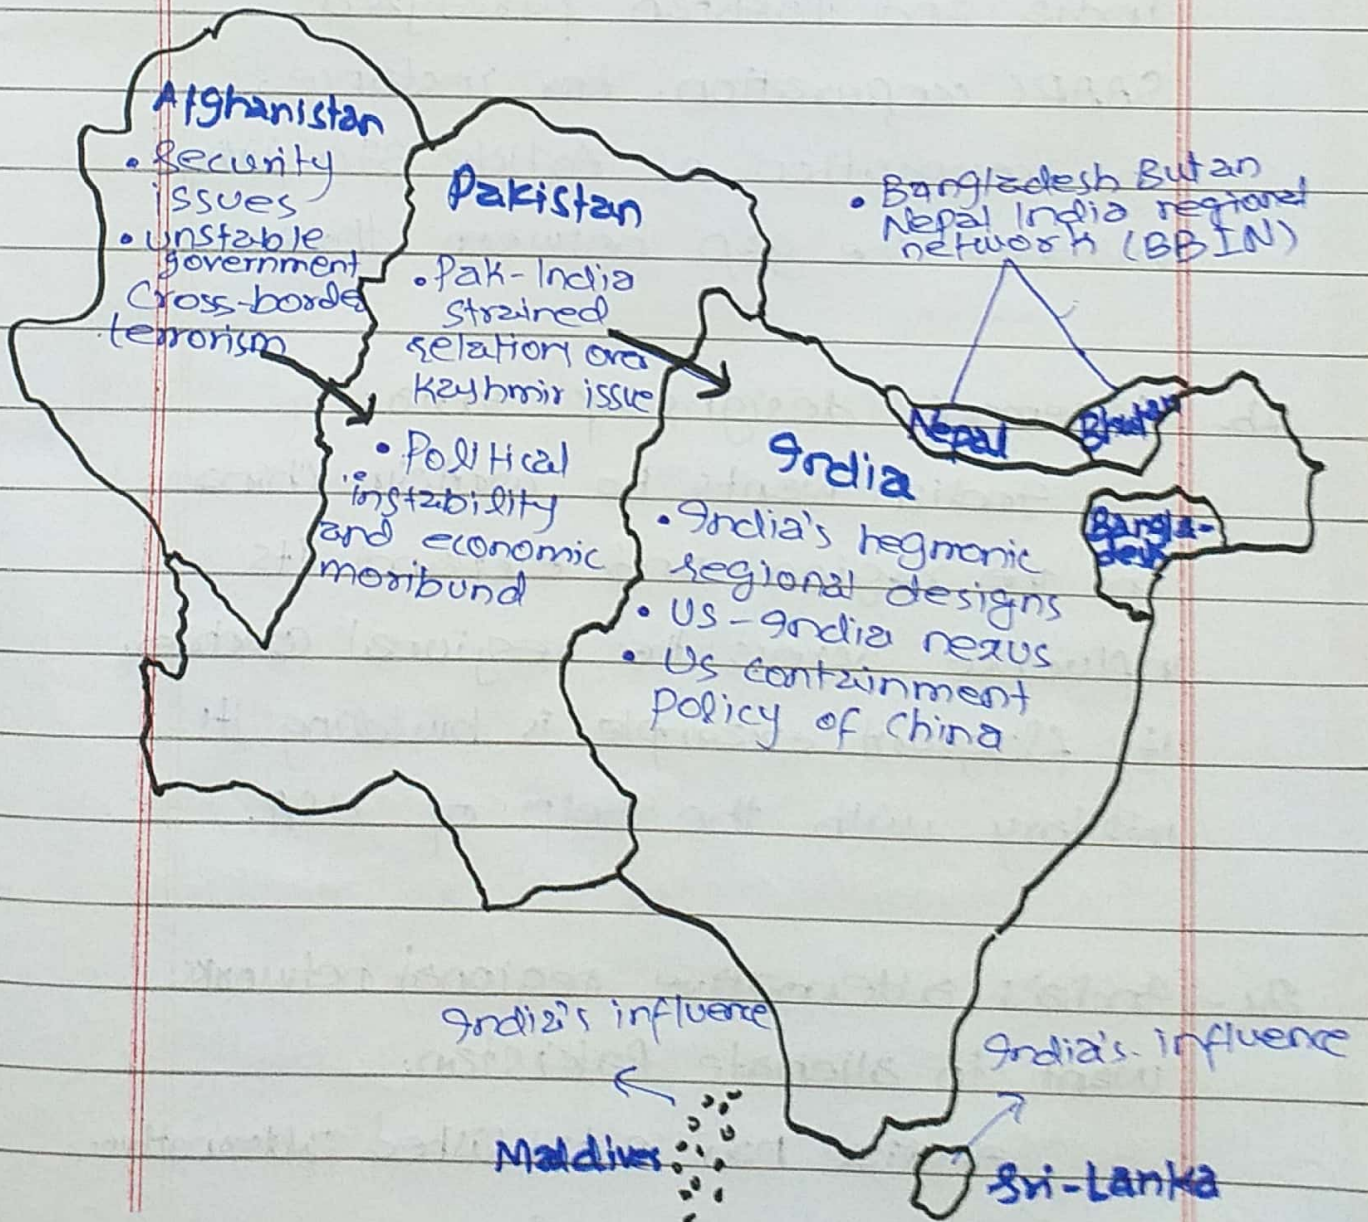 Afghanistan
• Security
issues
• unstable
government
Cross-border
terrorism
Pakistan
• Pak-India
strained
relation over
Kashmir issue
• Political
instability
and economic
moribund
• Bangladesh Butan
Nepal India regional
network (BBIN)
Nepal
Bhutan
Bangla-
desh
India
• India's hegmonic
regional designs
• US-India nexus
• Us containment
Policy of China
India's influence
Maldives
India's influence
Sri-Lanka